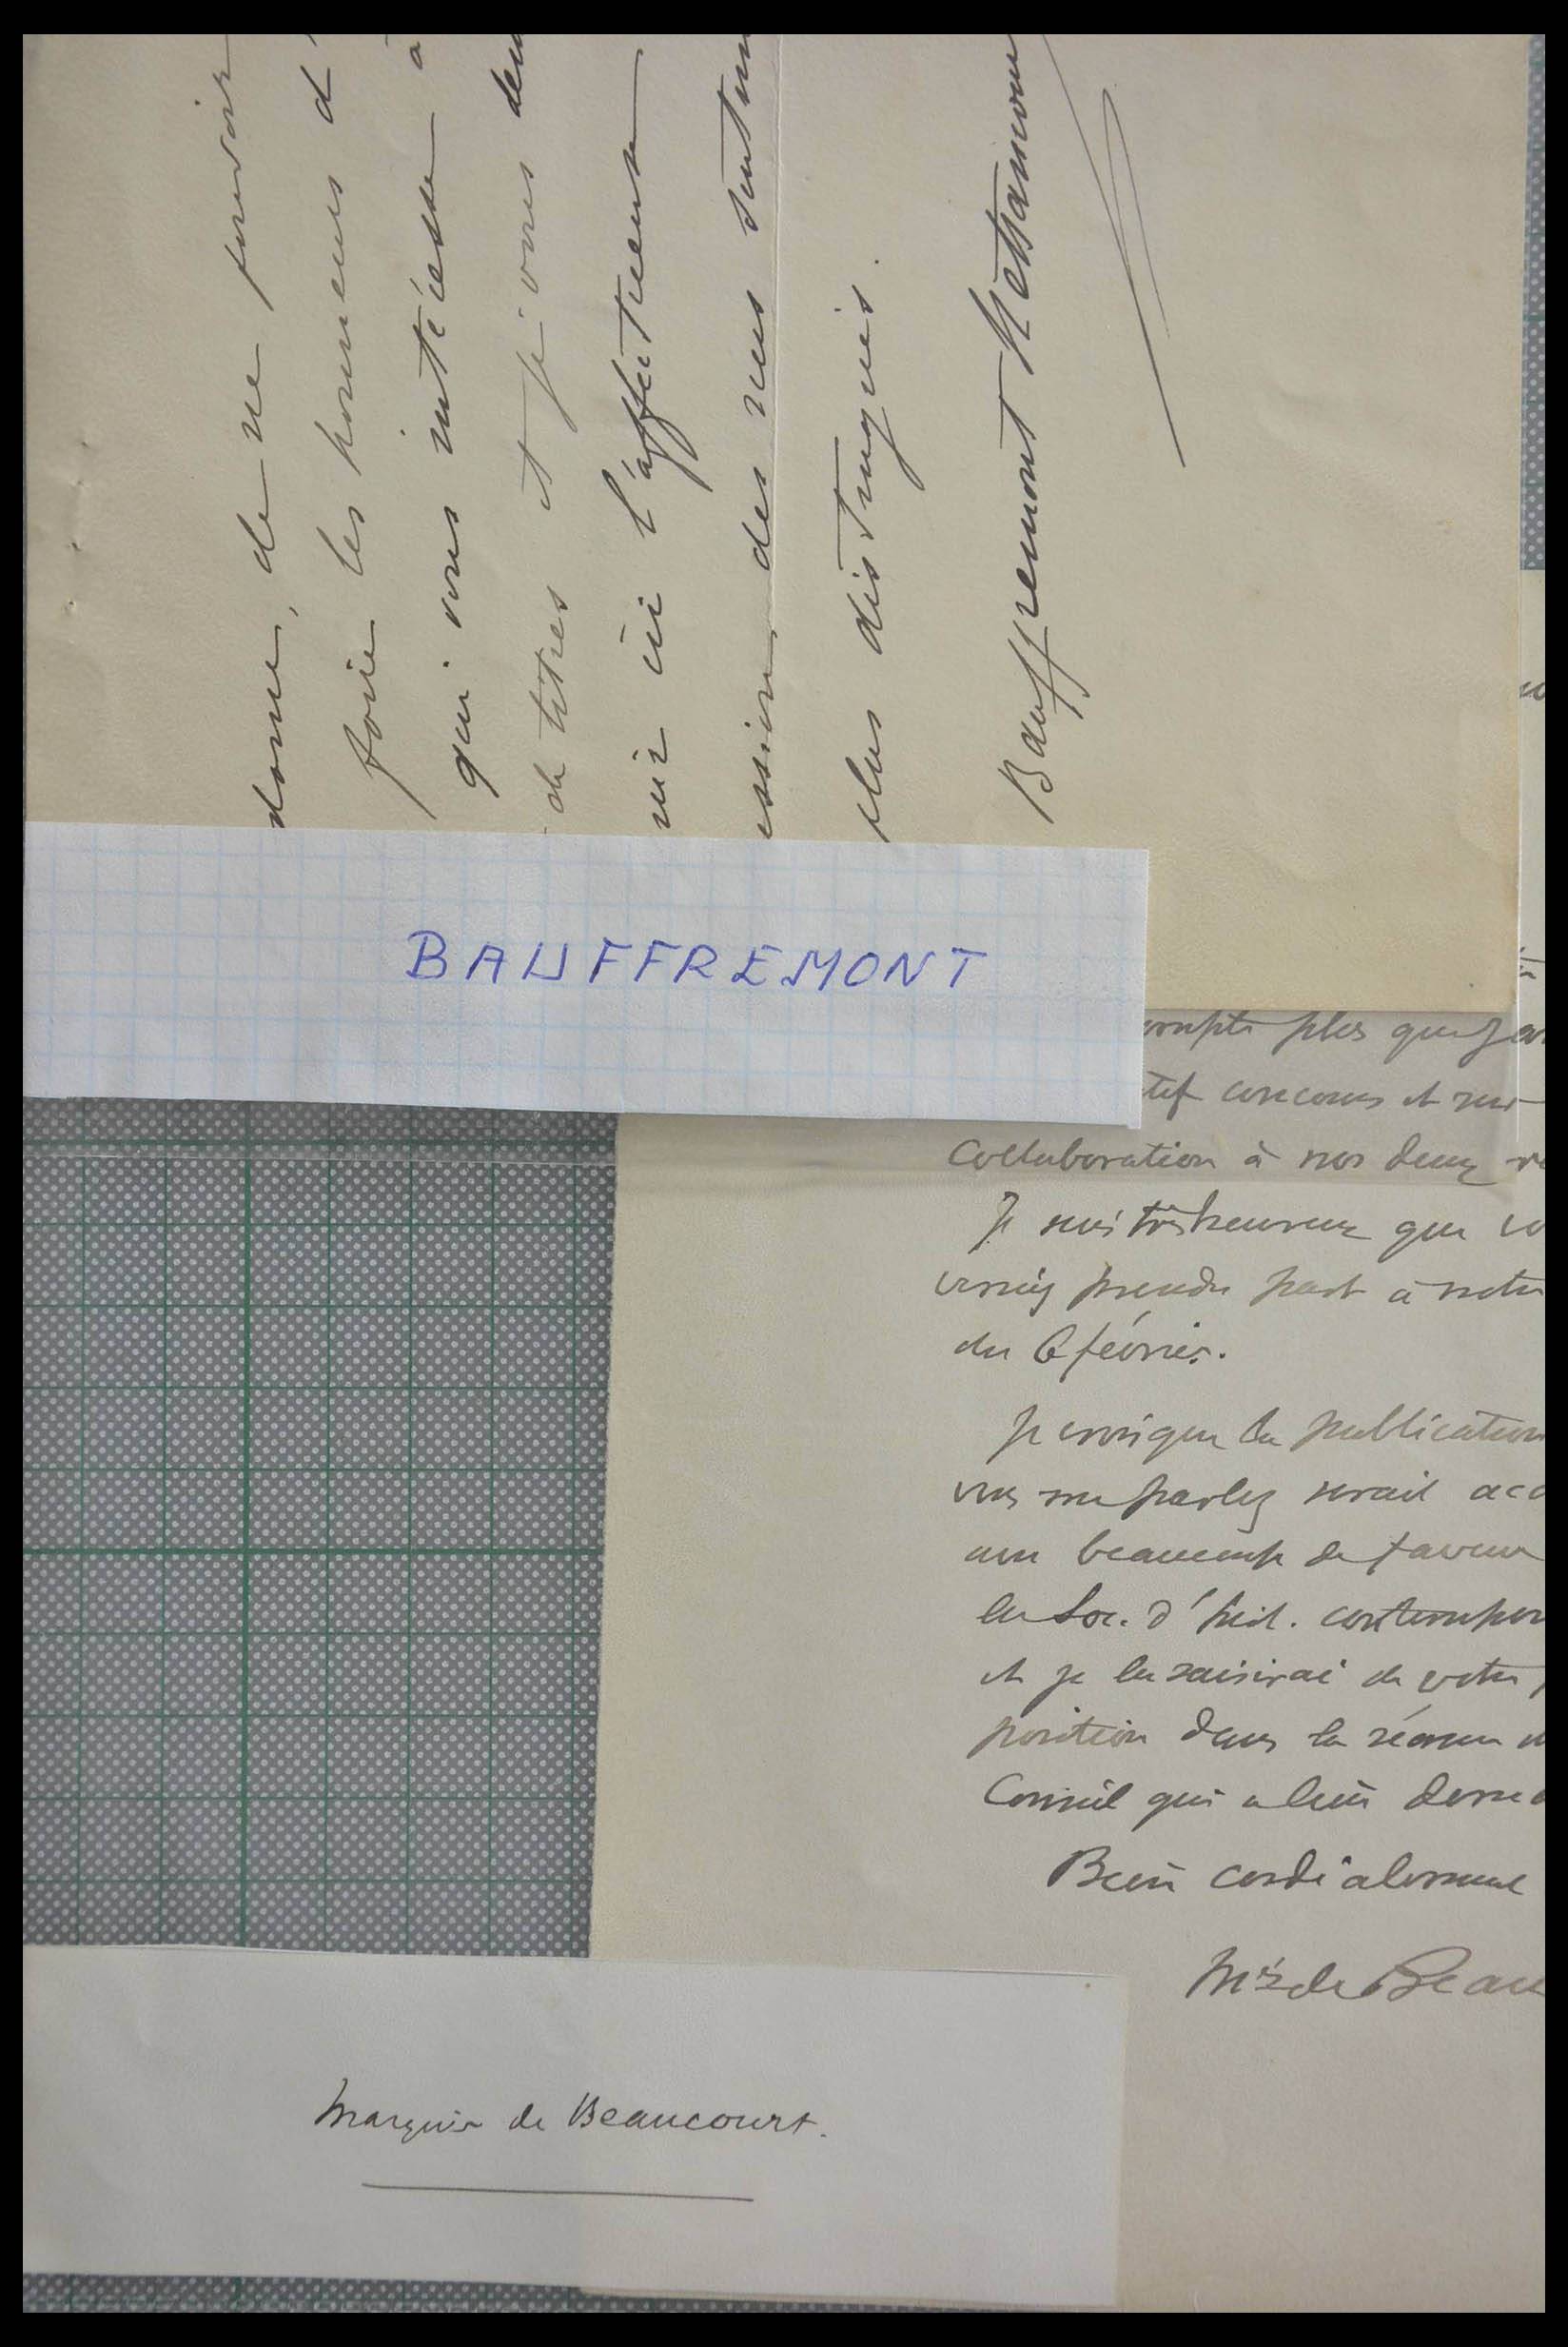 donne, de ne pouvoir
faire les honneurs d'
qui vous intéresse à
de titres et je vous
ici l'affectueuse
des mes
plus distingués.
Bauffremont
BAUFFREMONT
plus que
concours et
Collaboration à nos deux
Je suis très heureux que
veniez prendre part à notre
du 6 février.
Je crois que la publication
vous me parlez serait
avec beaucoup de faveur
la Soc. d'hist. contempor
et je la saisirai de votre
position dans la réunion
Conseil qui a lieu
Bien cordialement
Mis de Beau
Marquis de Beaucourt.